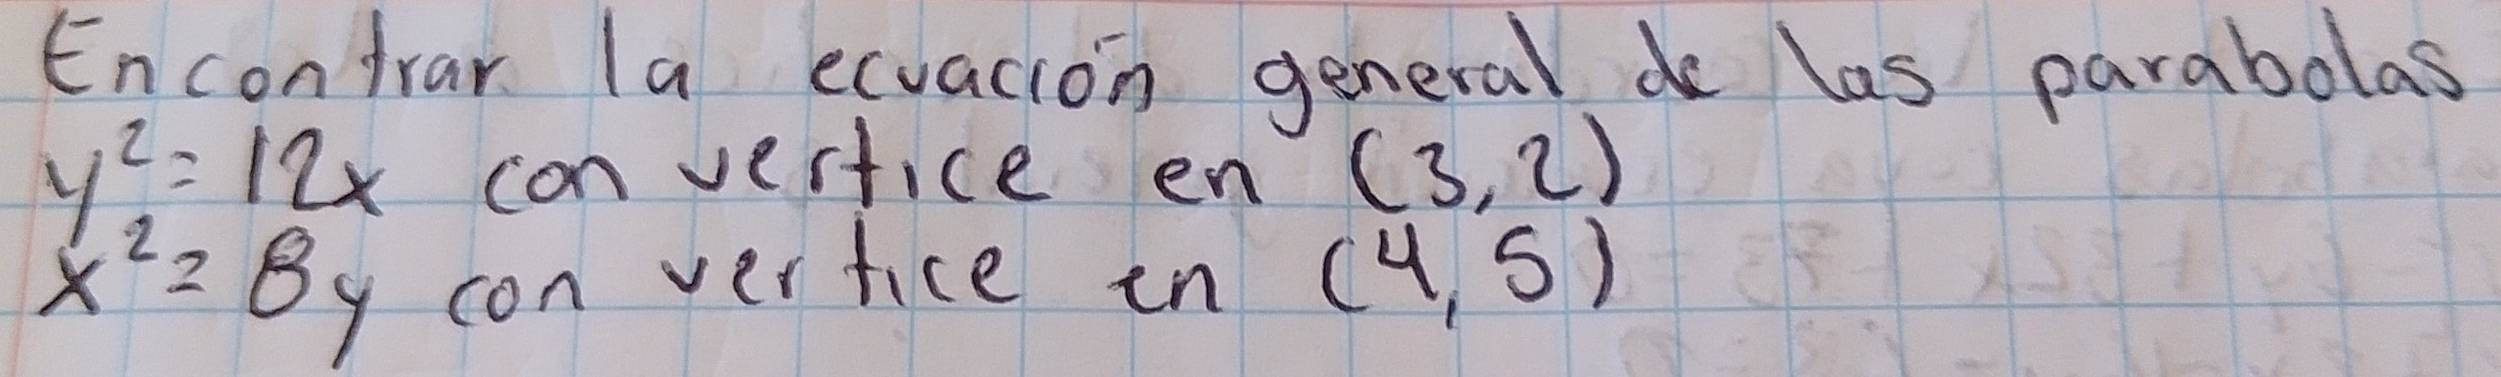 Encontrar la ecuación general de las parabolas
y² = 12x con vertice en (3,2)
x² = 8y con vertice en (4,5)